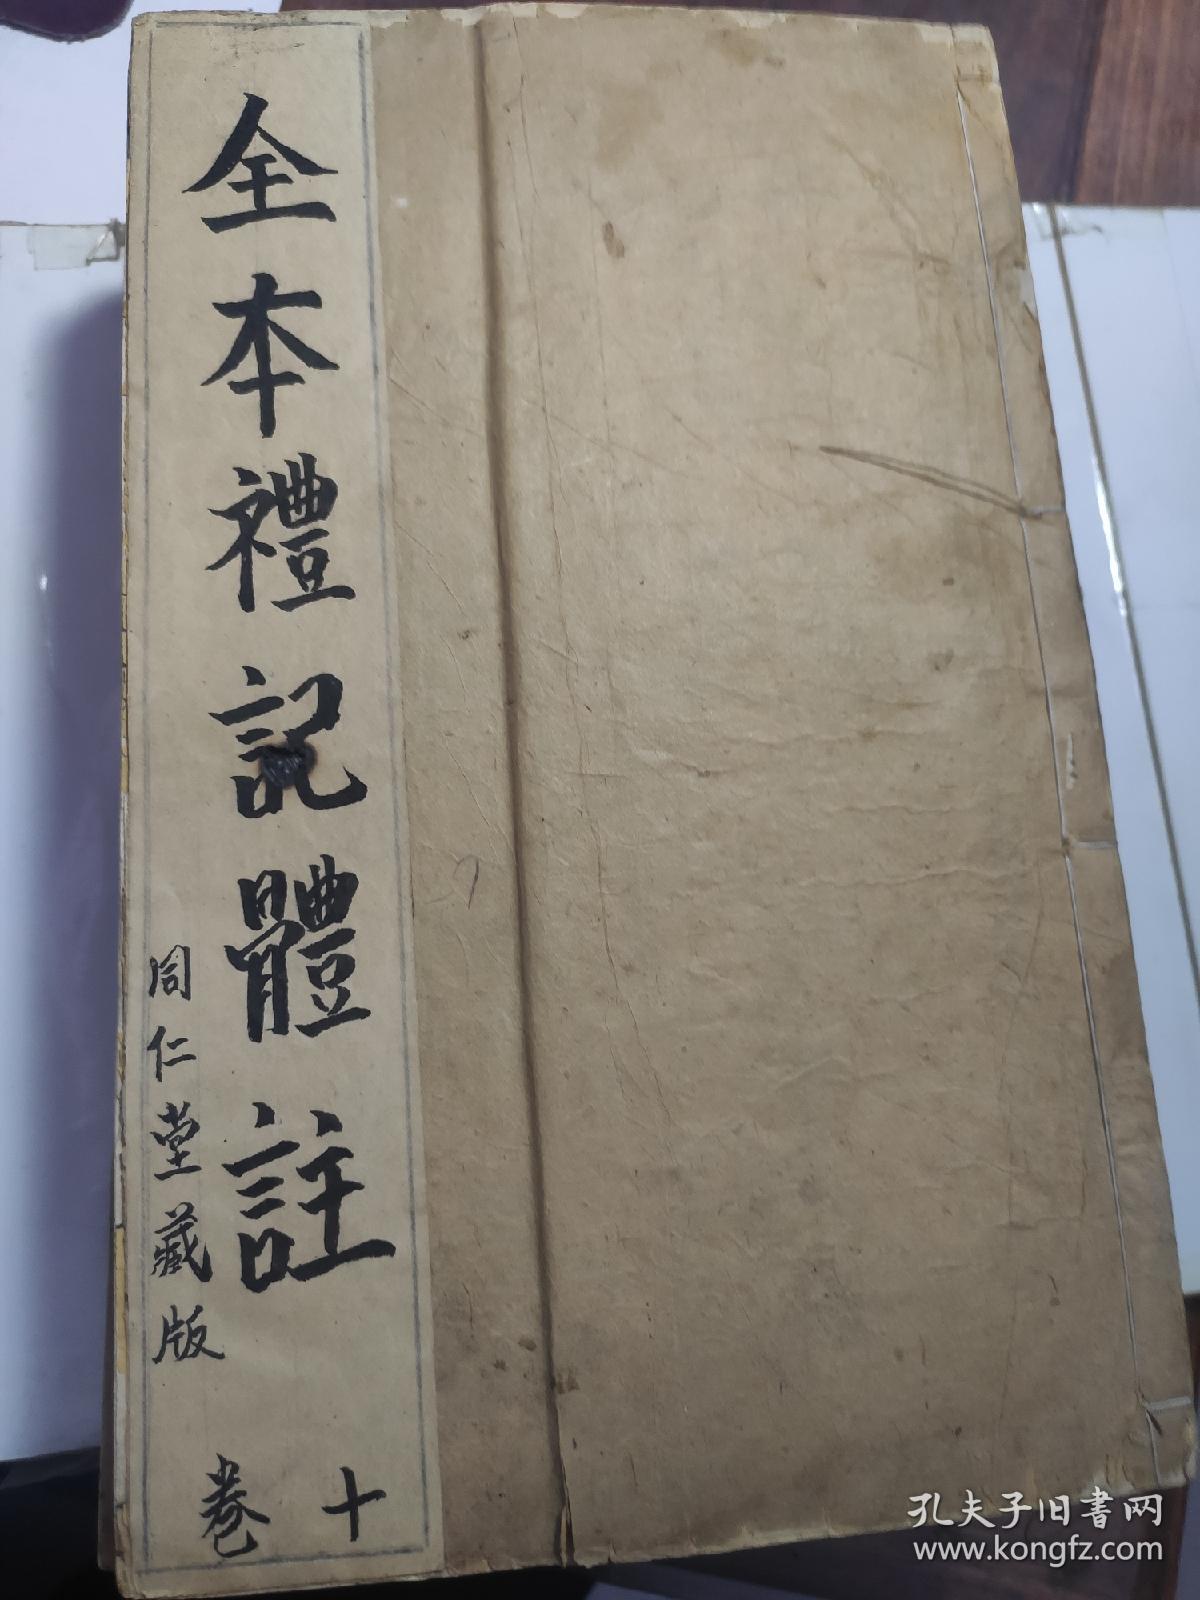 全本禮記體註
同仁堂藏版
十卷
孔夫子旧書网
www.kongfz.com